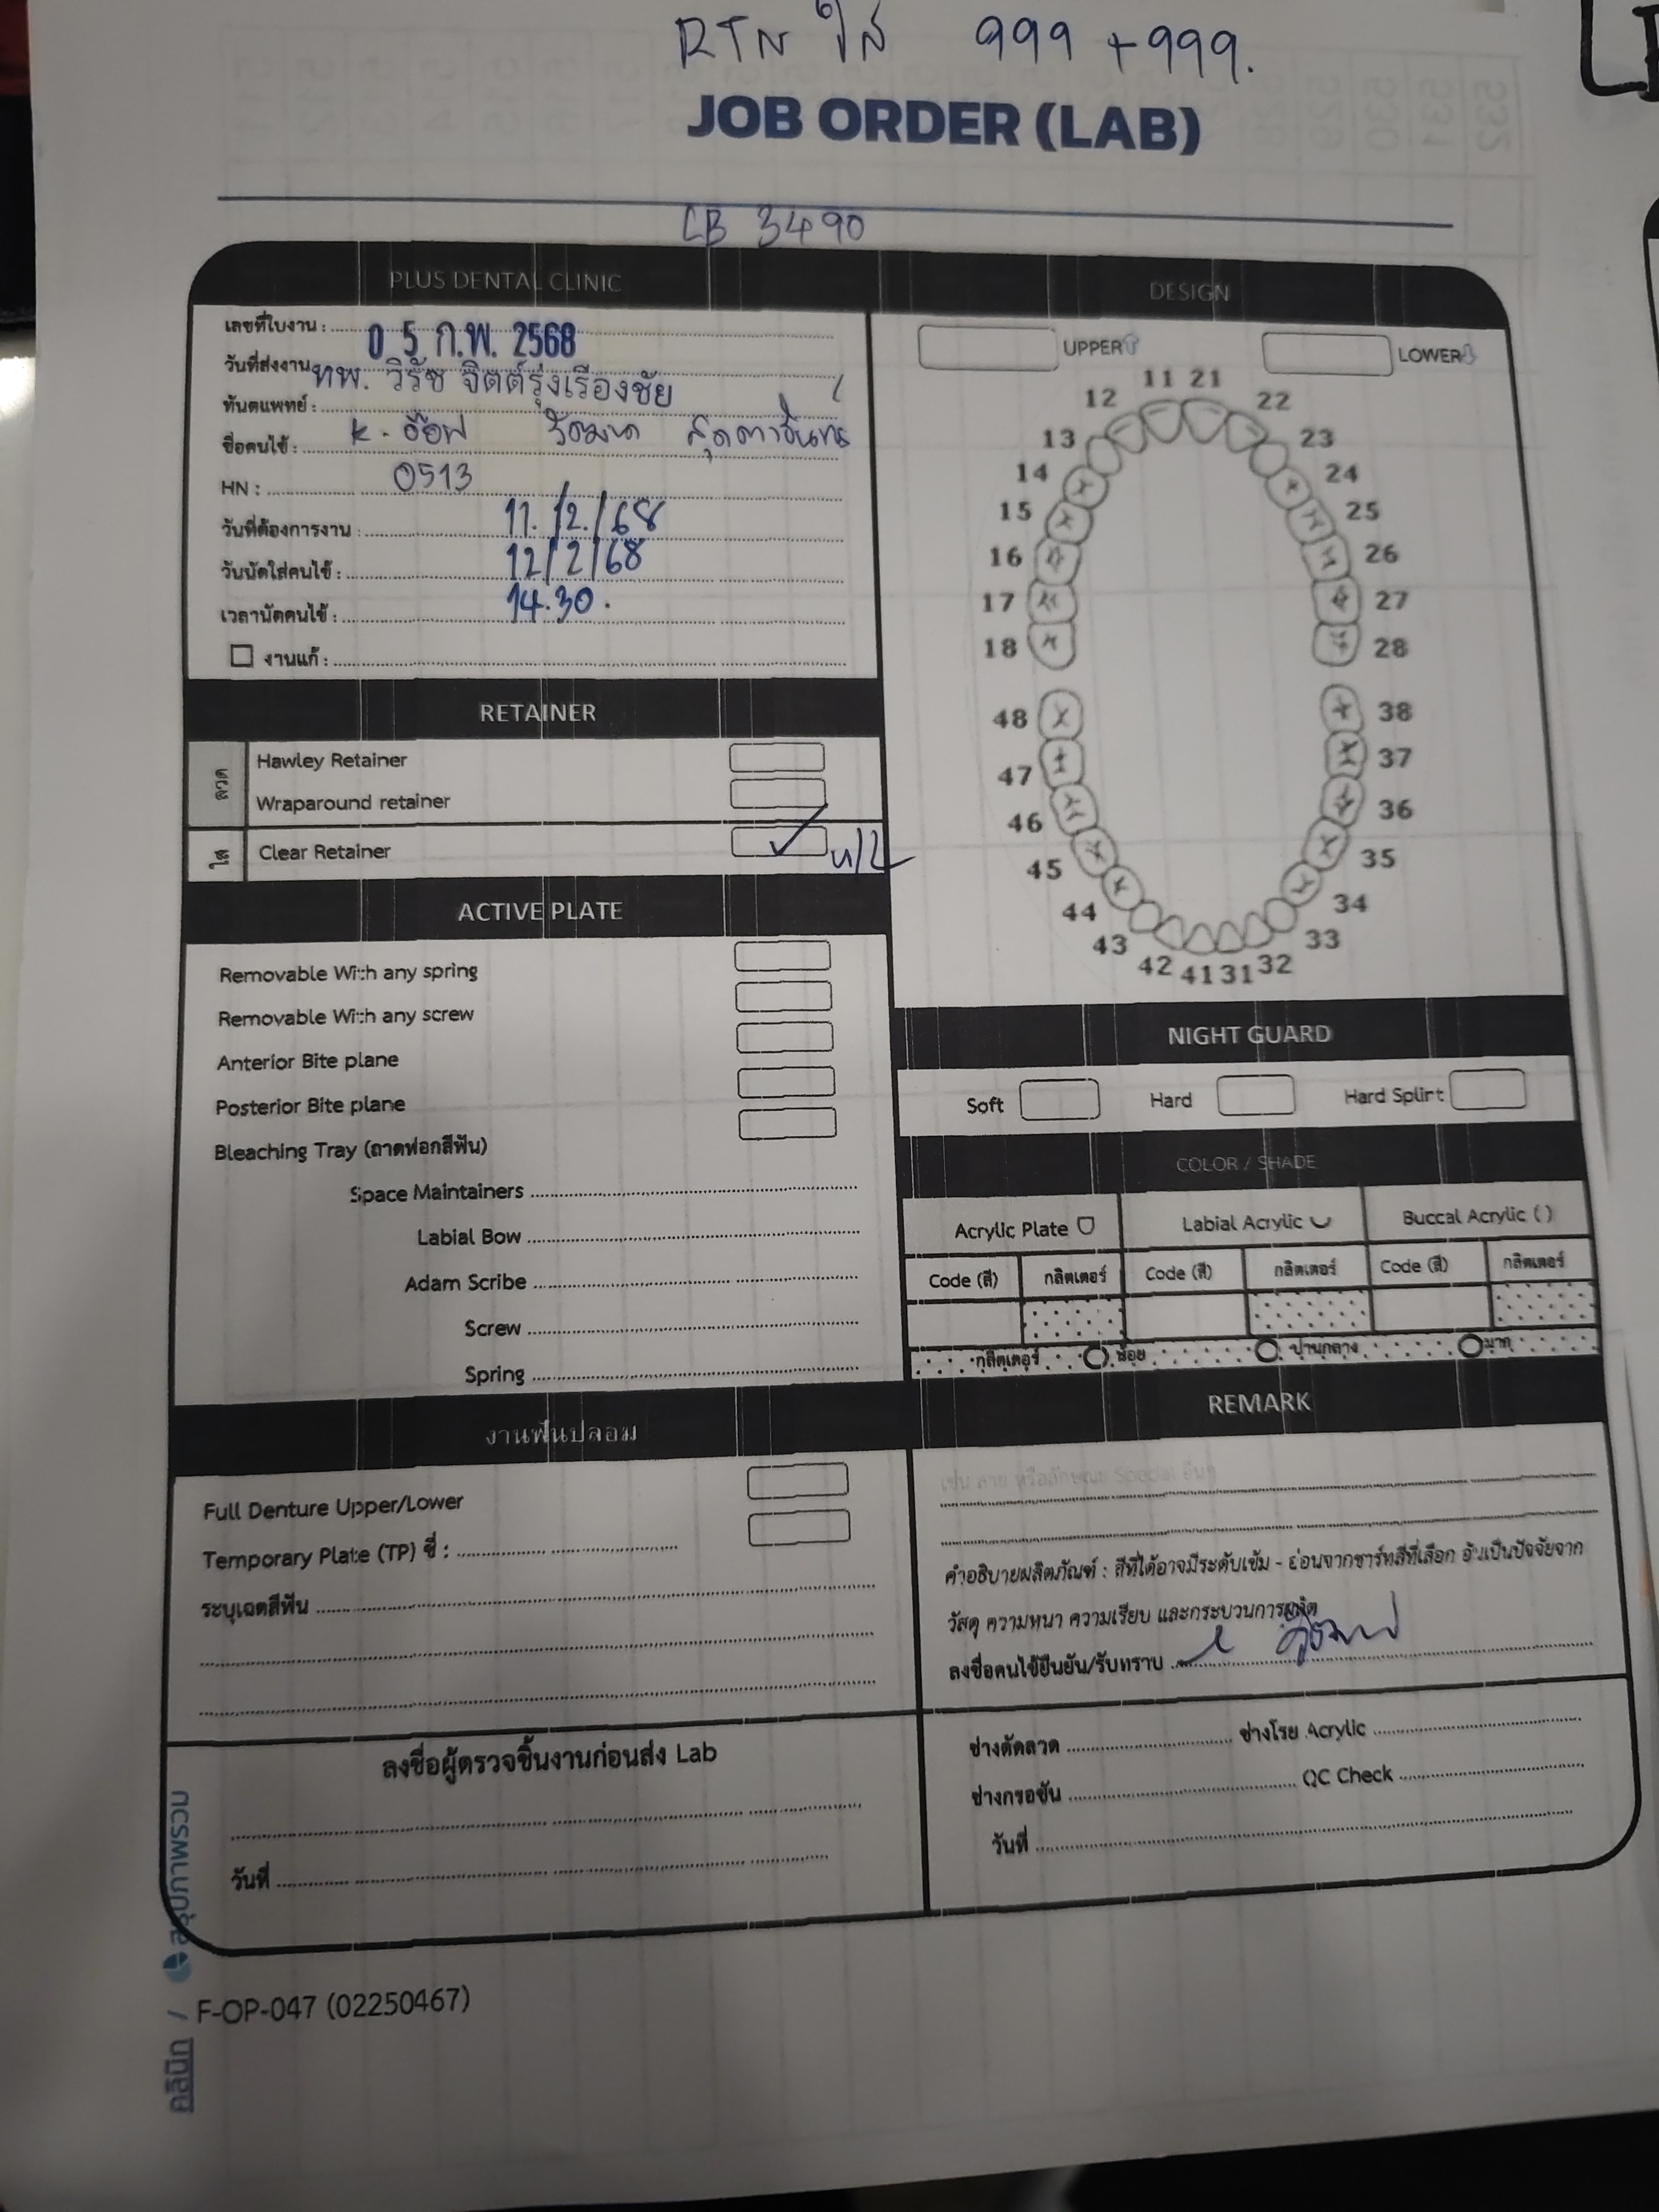 RTN ใส 999 + 999.
JOB ORDER (LAB)
CB 3490
PLUS DENTAL CLINIC
เลขที่ใบงาน :
วันที่ส่งงาน 05 ก.พ. 2568
ทันตแพทย์ : ทพ. วิรัช จิตต์รุ่งเรืองชัย
ชื่อคนไข้ : K. อ๊อฟ
HN : 0513
วันที่ต้องการงาน : 11/2/68
วันนัดใส่คนไข้ : 12/2/68
เวลานัดคนไข้ : 14.30.
งานแก้ :
RETAINER
ลวด
Hawley Retainer
Wraparound retainer
ใส
Clear Retainer ✓ u/L
ACTIVE PLATE
Removable With any spring
Removable With any screw
Anterior Bite plane
Posterior Bite plane
Bleaching Tray (ถาดฟอกสีฟัน)
Space Maintainers
Labial Bow
Adam Scribe
Screw
Spring
งานฟันปลอม
Full Denture Upper/Lower
Temporary Plate (TP) ซี่ :
ระบุเฉดสีฟัน
ลงชื่อผู้ตรวจชิ้นงานก่อนส่ง Lab
วันที่
DESIGN
UPPER
LOWER
11 21
12 22
13 23
14 24
15 25
16 26
17 27
18 28
48 38
47 37
46 36
45 35
44 34
43 33
42 41 31 32
NIGHT GUARD
Soft Hard Hard Splint
COLOR / SHADE
Acrylic Plate Labial Acrylic Buccal Acrylic ( )
Code (สี) กลิตเตอร์ Code (สี) กลิตเตอร์ Code (สี) กลิตเตอร์
กลิตเตอร์ น้อย ปานกลาง มาก
REMARK
เช่น ลาย หรือลักษณะ Special อื่นๆ
คำอธิบายผลิตภัณฑ์ : สีที่ได้อาจมีระดับเข้ม - อ่อนจากชาร์ทสีที่เลือก อันเป็นปัจจัยจาก
วัสดุ ความหนา ความเรียบ และกระบวนการผลิต
ลงชื่อคนไข้ยืนยัน/รับทราบ
ช่างดัดลวด ช่างโรย Acrylic
ช่างกรอขัน QC Check
วันที่
F-OP-047 (02250467)
คลินิก /